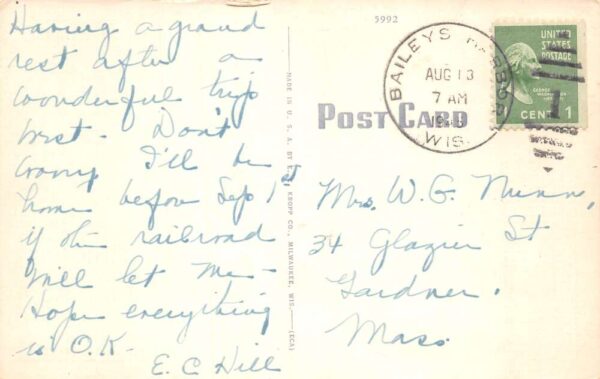 5992
Having a grand
rest after a
wonderful trip
west - Don't
worry I'll be
home before Sep 1st
if the railroad
will let me -
Hope everything
is O.K.
E. C. Hill
MADE IN U. S. A. BY E. C. KROPP CO., MILWAUKEE, WIS. (ECA)
POST CARD
BAILEYS HARBOR
AUG 13
7 AM
WIS.
UNITED
STATES
POSTAGE
GEORGE
WASHINGTON
CENT 1
Mrs. W. G. Nunn,
34 Glazier St
Gardner.
Mass.